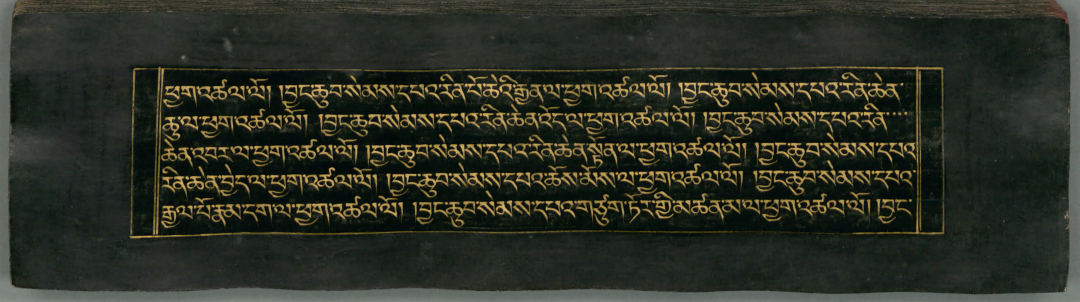 ཕྱག་འཚལ་ལོ། །བྱང་ཆུབ་སེམས་དཔའ་རིན་པོ་ཆེའི་རྒྱན་ལ་ཕྱག་འཚལ་ལོ། །བྱང་ཆུབ་སེམས་དཔའ་རིན་ཆེན་
ཟླ་ལ་ཕྱག་འཚལ་ལོ། །བྱང་ཆུབ་སེམས་དཔའ་རིན་ཆེན་འོད་ལ་ཕྱག་འཚལ་ལོ། །བྱང་ཆུབ་སེམས་དཔའ་རིན་
ཆེན་འབར་ལ་ཕྱག་འཚལ་ལོ། །བྱང་ཆུབ་སེམས་དཔའ་རིན་ཆེན་སྟན་ལ་ཕྱག་འཚལ་ལོ། །བྱང་ཆུབ་སེམས་དཔའ
རིན་ཆེན་བྱེད་ལ་ཕྱག་འཚལ་ལོ། །བྱང་ཆུབ་སེམས་དཔའ་ཆོས་མོས་ལ་ཕྱག་འཚལ་ལོ། །བྱང་ཆུབ་སེམས་དཔའ་
རྒྱལ་པོ་རྣམ་དག་ལ་ཕྱག་འཚལ་ལོ། །བྱང་ཆུབ་སེམས་དཔའ་གཙུག་ཏོར་གྱི་མཚན་མ་ལ་ཕྱག་འཚལ་ལོ། །བྱང་